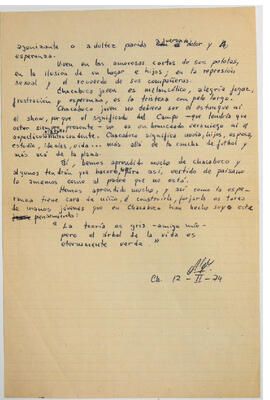 agonizante o adultez parida adversa dolor y
esperanza.
Viven en las amorosas cartas de sus pololas,
en la ilusión de su hogar e hijos; en la represión
sexual y el recuerdo de sus compañeras.
Chacabuco joven es melancólico, alegría fugaz,
frustración y esperanza, es la tristeza con pelo largo.
Chacabuco joven no debiera ser el estanque ni
el show, porque el significado del Campo -que tendrá que
estar siempre presente- no es un bronceado veraniego ni el
espectáculo. Chacabuco significa novia, hijos, esposa,
estudio, ideales, vida... más allá de la cancha de fútbol y
más acá de la plana.
Sí, hemos aprendido mucho de Chacabuco y
algunos tendrán que hacerlo, para así, vestido de paisano
lo amemos como al padre que no está.
Hemos aprendido mucho, y así como la espe-
ranza tiene cara de niño, el construirla, forjarla es tarea
de manos jóvenes que en Chacabuco han hecho suyo este
pensamiento:
"La teoría es gris -amigo mío-
pero el árbol de la vida es
eternamente verde."
Ch. 12 - II - 74